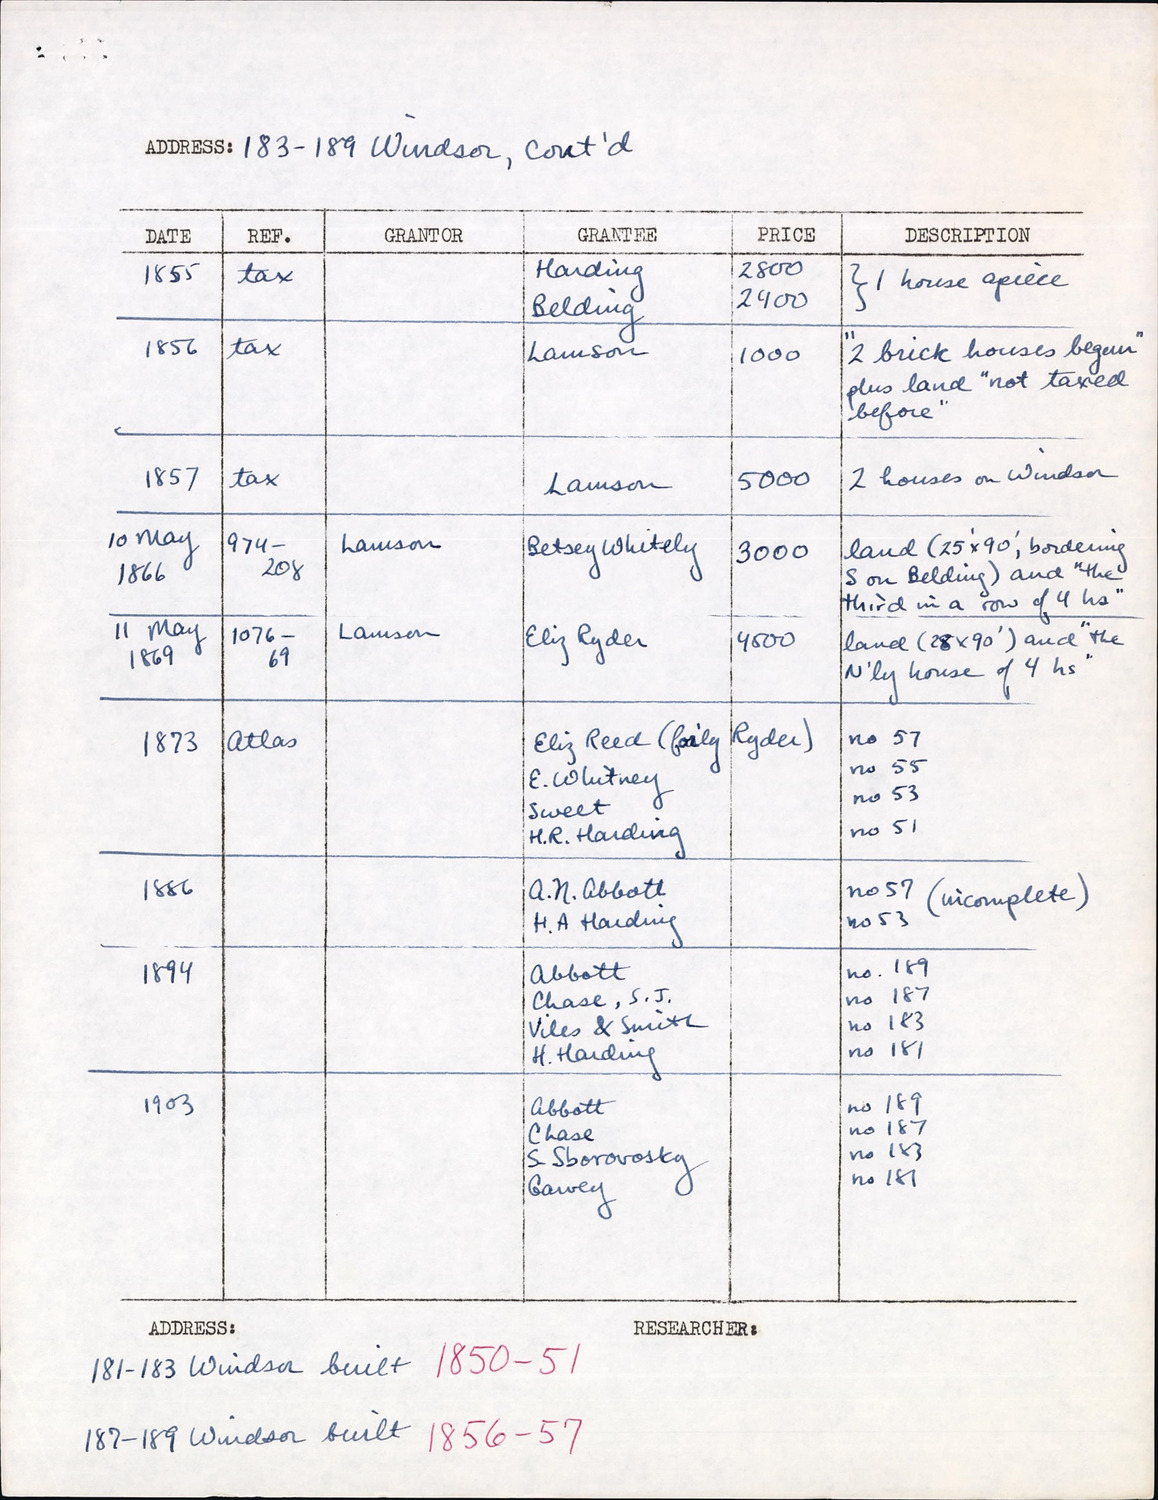 ADDRESS: 183-189 Windsor, cont'd
DATE REF. GRANTOR GRANTEE PRICE DESCRIPTION
1855 tax Harding 2800 } 1 house apiece
Belding 2400
1856 tax Lamson 1000 "2 brick houses begun"
plus land "not taxed
before"
1857 tax Lamson 5000 2 houses on Windsor
10 May 974- Lamson Betsey Whitely 3000 land (25'x90', bordering
1866 208 S on Belding) and "the
third in a row of 4 hs"
11 May 1076- Lamson Eliz Ryder 4500 land (28x90') and "the
1869 69 N'ly house of 4 hs"
1873 Atlas Eliz Reed ( Ryder) no 57
E. Whitney no 55
Sweet no 53
H.R. Harding no 51
1886 A.N. Abbott no 57 (incomplete)
H.A Harding no 53
1894 Abbott no. 189
Chase, S.J. no 187
Viles & Smith no 183
H. Harding no 181
1903 Abbott no 189
Chase no 187
S Sborovosky no 183
Garvey no 181
ADDRESS: RESEARCHER:
181-183 Windsor built 1850-51
187-189 Windsor built 1856-57